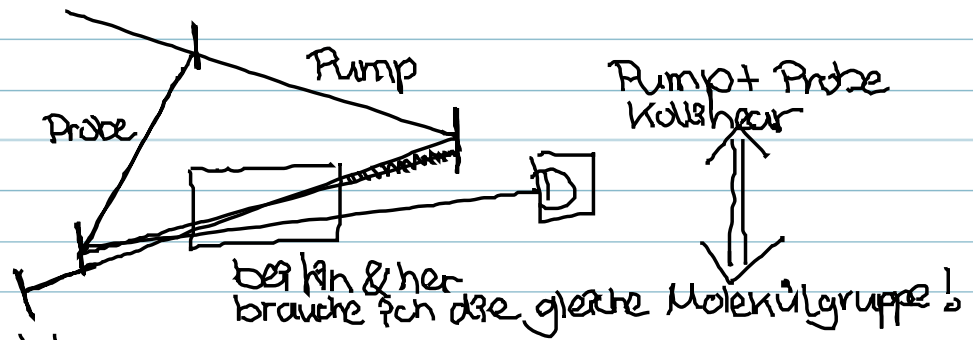 Pump
Probe
Pump + Probe
Kollinear
bei hin & her
brauche ich die gleiche Molekülgruppe!